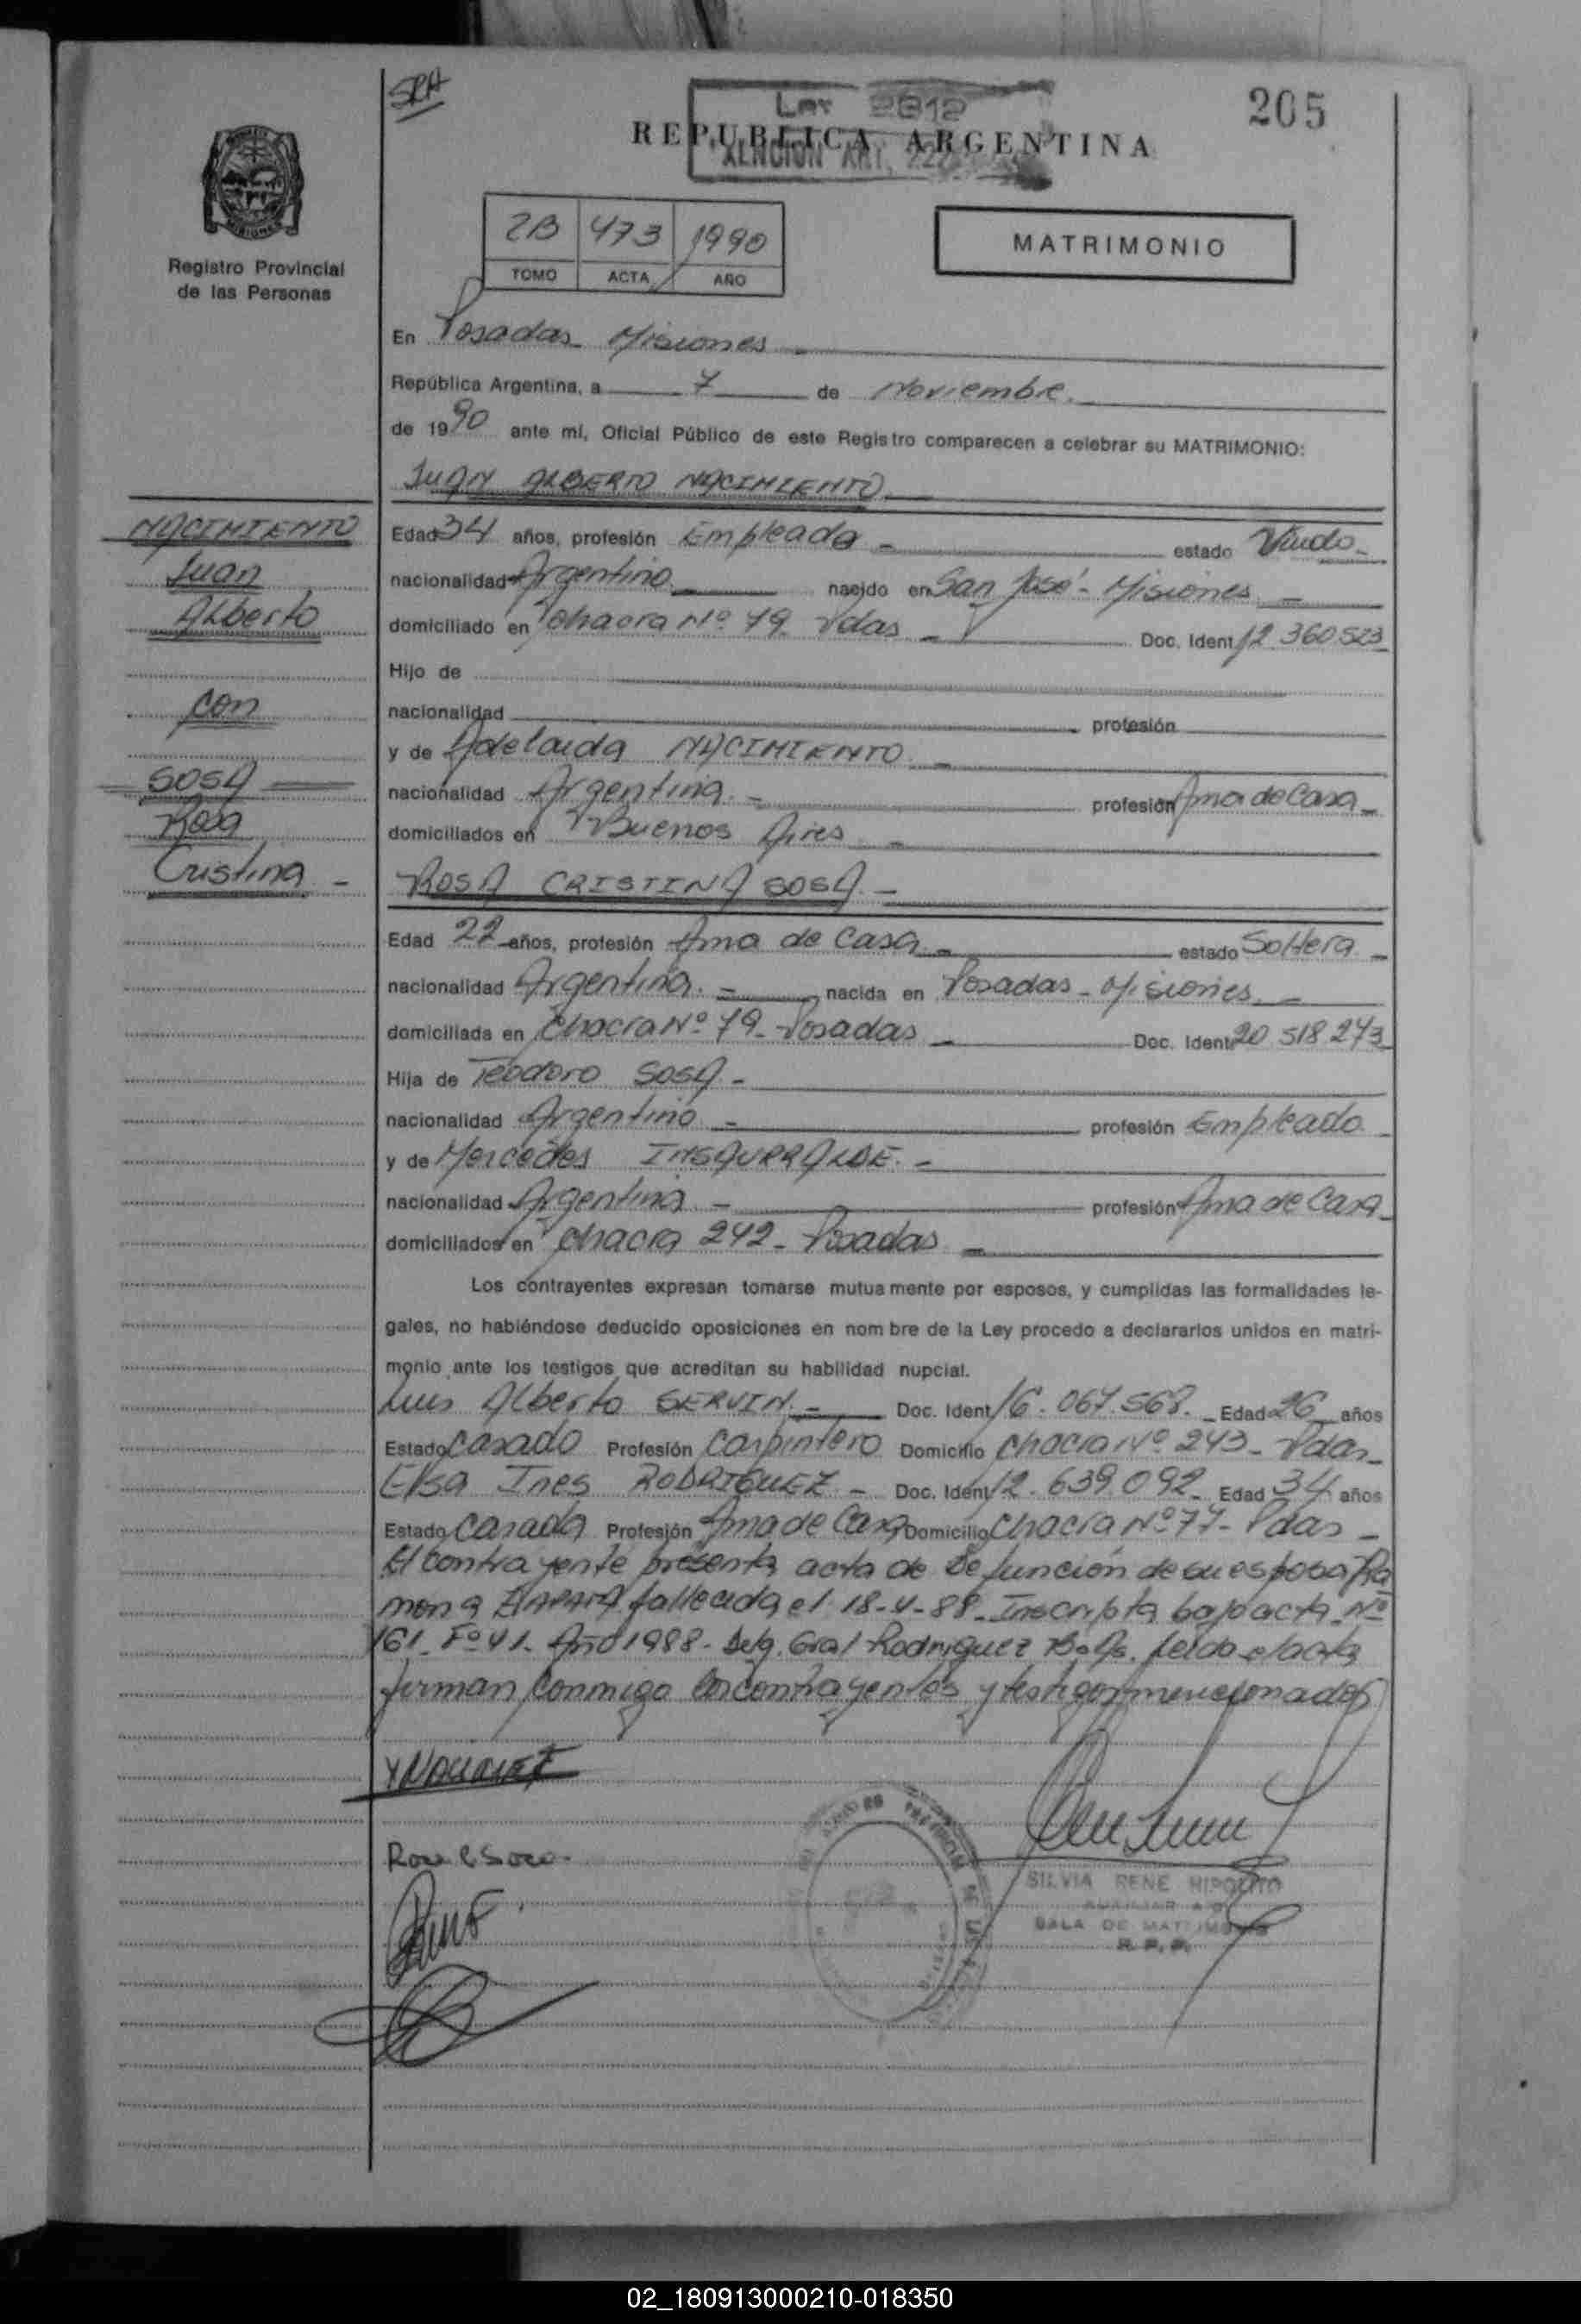 SRH
205
Ley 2812
REPUBLICA ARGENTINA
EXENCION ART. 222
2B 473 1990
TOMO ACTA AÑO
MATRIMONIO
Registro Provincial
de las Personas
En Posadas Misiones
República Argentina, a 7 de Noviembre.
de 1990 ante mí, Oficial Público de este Registro comparecen a celebrar su MATRIMONIO:
JUAN ALBERTO NACIMIENTO
NACIMIENTO
Juan
Alberto
con
SOSA
Rosa
Cristina -
Edad 34 años, profesión Empleado - estado Viudo -
nacionalidad Argentino nacido en San José - Misiones -
domiciliado en Chacra Nº 79. Pdas - Doc. Ident 12.360.523
Hijo de
nacionalidad profesión
y de Adelaida NACIMIENTO. -
nacionalidad Argentina. - profesión Ama de Casa -
domiciliados en Buenos Aires -
ROSA CRISTINA SOSA. -
Edad 22 años, profesión Ama de Casa. - estado Soltera -
nacionalidad Argentina. - nacida en Posadas - Misiones. -
domiciliada en Chacra Nº 79 - Posadas - Doc. Ident 20 518 273
Hija de Teodoro SOSA. -
nacionalidad Argentino - profesión Empleado -
y de Mercedes INSAURRALDE. -
nacionalidad Argentina - profesión Ama de Casa -
domiciliados en Chacra 242 - Posadas -
Los contrayentes expresan tomarse mutuamente por esposos, y cumplidas las formalidades le-
gales, no habiéndose deducido oposiciones en nombre de la Ley procedo a declararlos unidos en matri-
monio ante los testigos que acreditan su habilidad nupcial.
Luis Alberto SERVIN. - Doc. Ident 16.067.568. - Edad 26 años
Estado Casado Profesión Carpintero Domicilio Chacra Nº 243 - Pdas -
Elsa Ines RODRIGUEZ - Doc. Ident 12.639.092 - Edad 34 años
Estado Casada Profesión Ama de Casa Domicilio Chacra Nº 77 - Pdas -
El contrayente presenta acta de Defunción de su esposa Ra
mona fallecida el 18-4-88 - Inscripta bajo acta Nº
161 - Fº 41 - Año 1988 - Delg. Gral Rodriguez Bs As. Leida el acta
firman conmigo los contrayentes y testigos mencionados
Rosa C Sosa
SILVIA RENE HIPOLITO
AUXILIAR
SALA DE MATRIMONIOS
R. P. P.
02_180913000210-018350